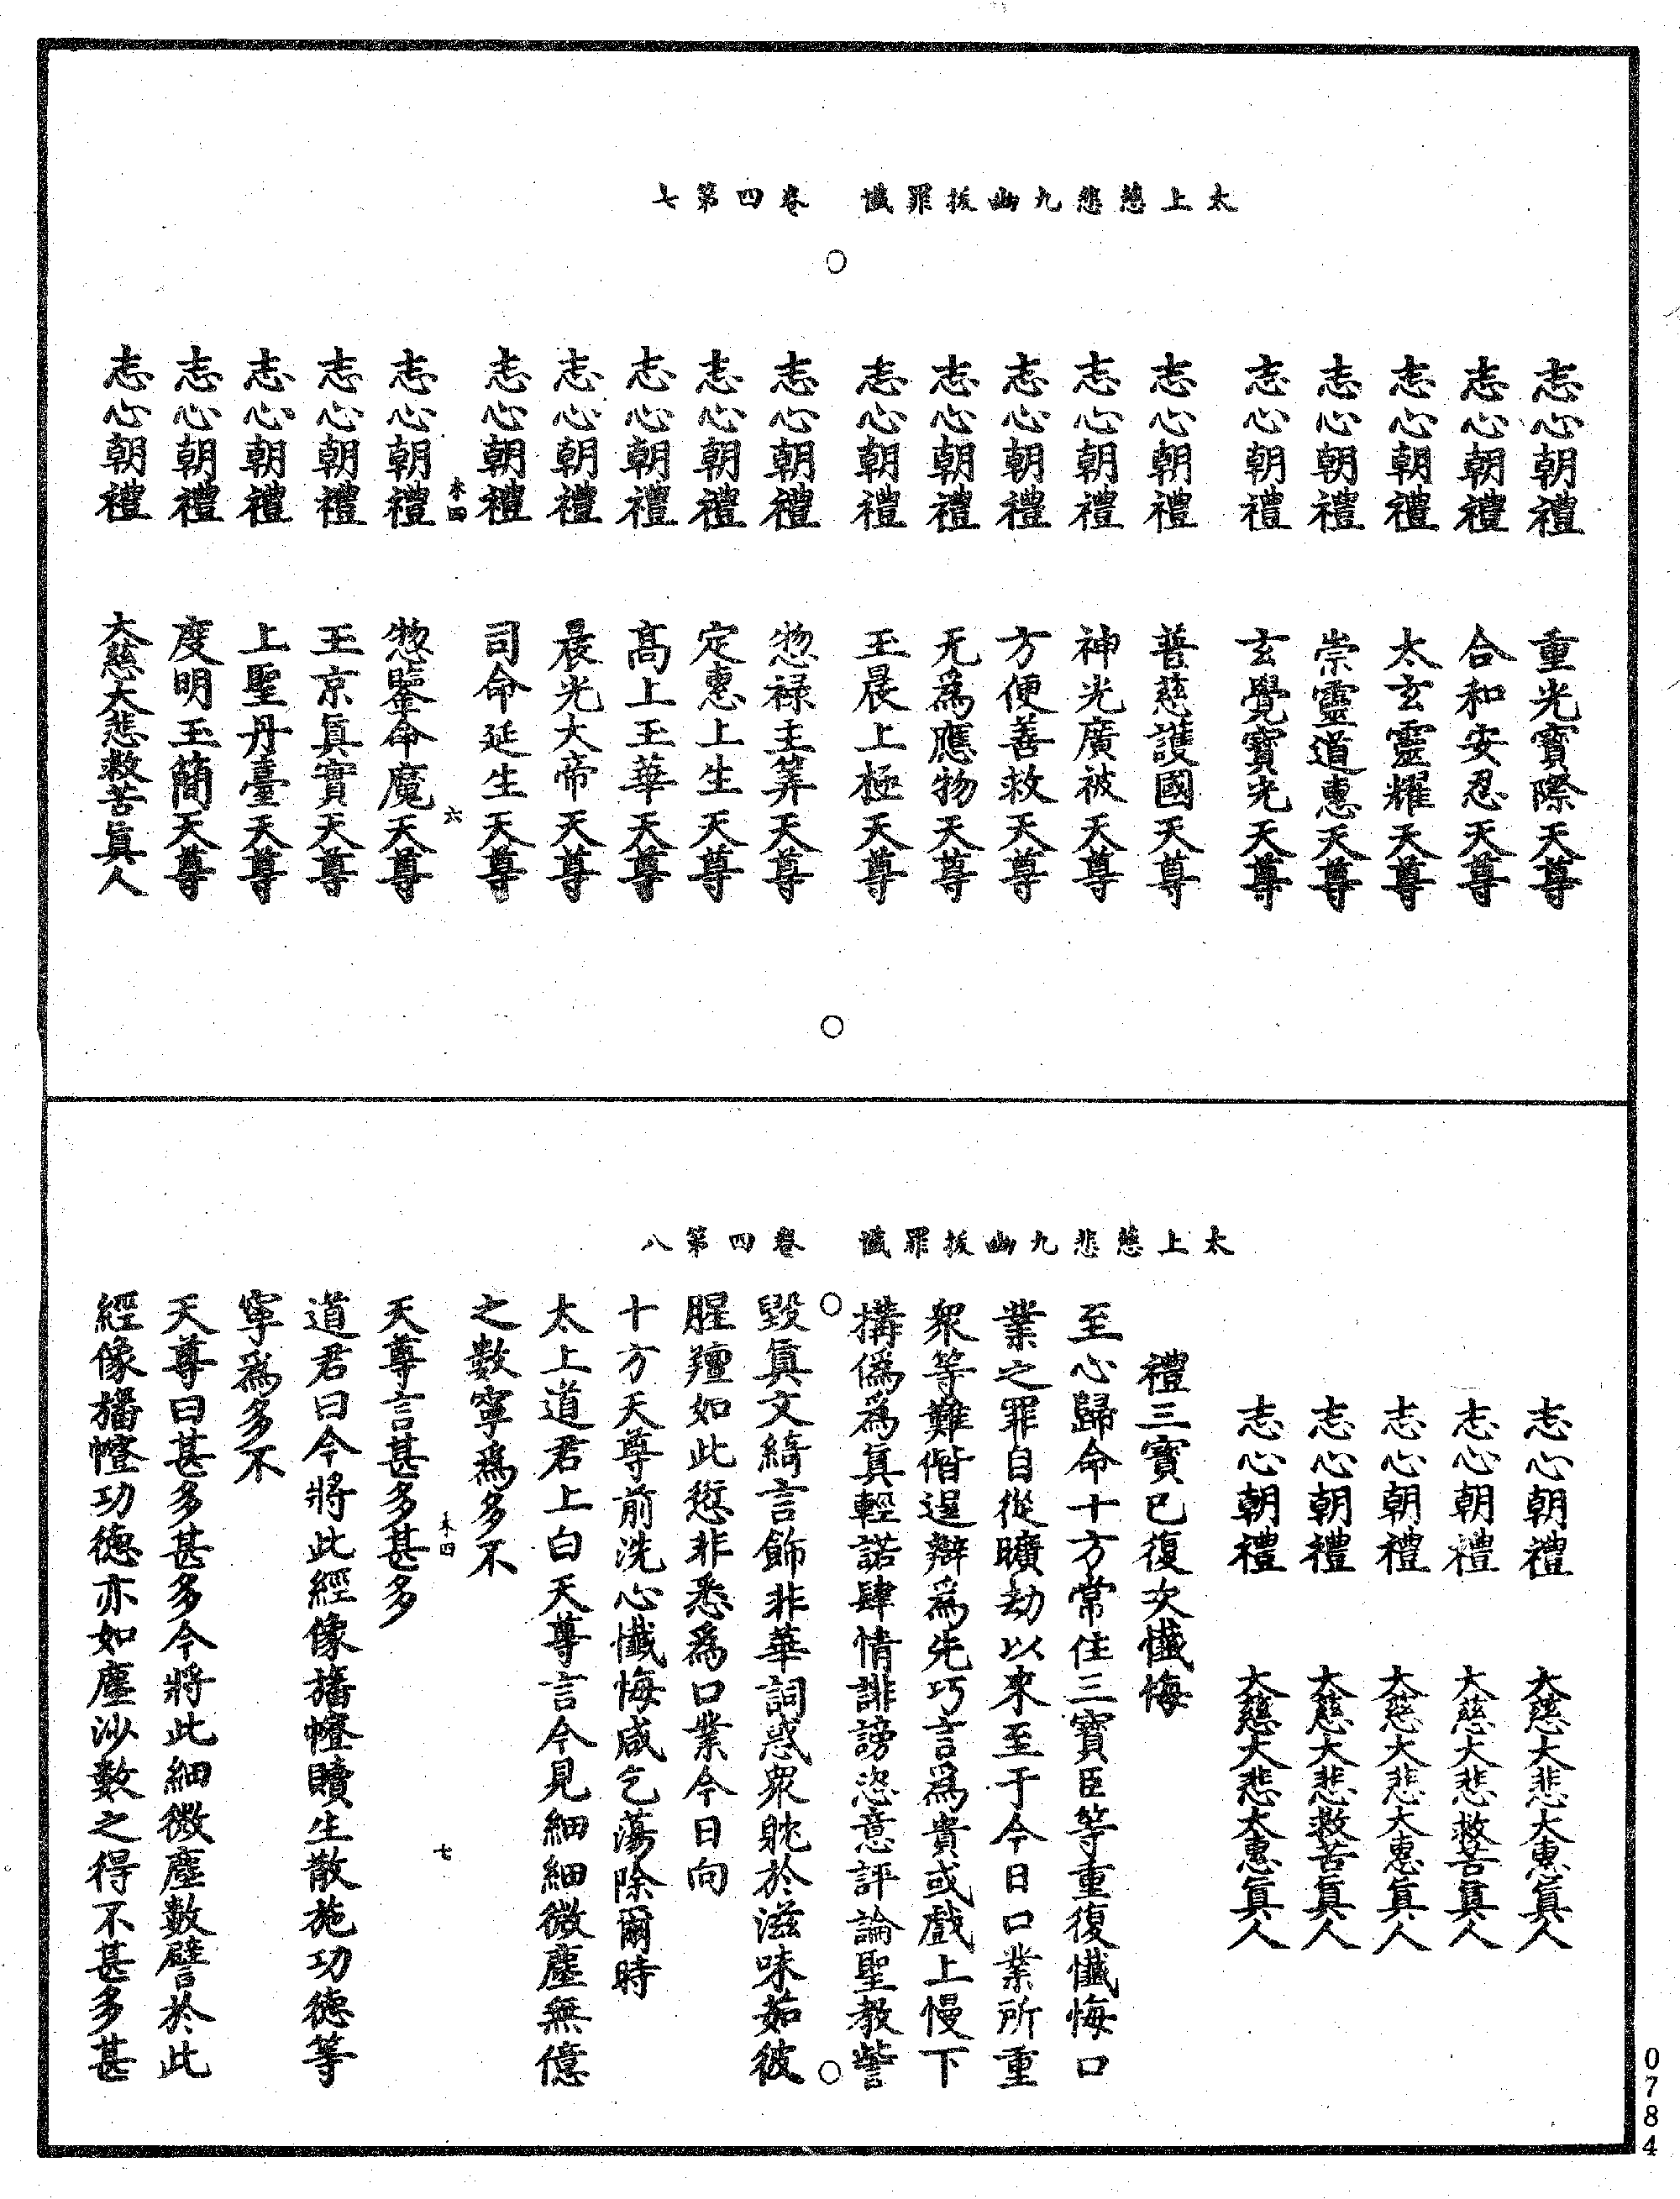 太上慈悲九幽拔罪懺　卷四第七
志心朝禮　重光寶際天尊
志心朝禮　合和安忍天尊
志心朝禮　太玄靈耀天尊
志心朝禮　崇靈道惠天尊
志心朝禮　玄覺寶光天尊
志心朝禮　普慈護國天尊
志心朝禮　神光廣被天尊
志心朝禮　方便善救天尊
志心朝禮　无為應物天尊
志心朝禮　玉晨上極天尊
志心朝禮　揔祿主筭天尊
志心朝禮　定惠上生天尊
志心朝禮　高上玉華天尊
志心朝禮　晨光大帝天尊
志心朝禮　司命延生天尊
木四　六
志心朝禮　揔鑒命魔天尊
志心朝禮　玉京真實天尊
志心朝禮　上聖丹臺天尊
志心朝禮　度明玉簡天尊
志心朝禮　大慈大悲救苦真人
太上慈悲九幽拔罪懺　卷四第八
志心朝禮　大慈大悲大惠真人
志心朝禮　大慈大悲救苦真人
志心朝禮　大慈大悲大惠真人
志心朝禮　大慈大悲救苦真人
志心朝禮　大慈大悲大惠真人
禮三寶已復次懺悔
至心歸命十方常住三寶臣等重復懺悔口
業之罪自從曠劫以來至于今日口業所重
衆等難偕逞辯為先巧言為貴或戲上慢下
搆偽為真輕諾肆情誹謗恣意評論聖教訾
毀真文綺言飾非華詞惑衆躭於滋味茹彼
腥羶如此愆非悉為口業今日向
十方天尊前洗心懺悔咸乞蕩除爾時
太上道君上白天尊言今見細細微塵無億
之數寧為多不
天尊言甚多甚多
木四　七
道君曰今將此經像旛幢贖生散施功德等
寧為多不
天尊曰甚多甚多今將此細微塵數譬於此
經像旛幢功德亦如塵沙數之得不甚多甚
0784